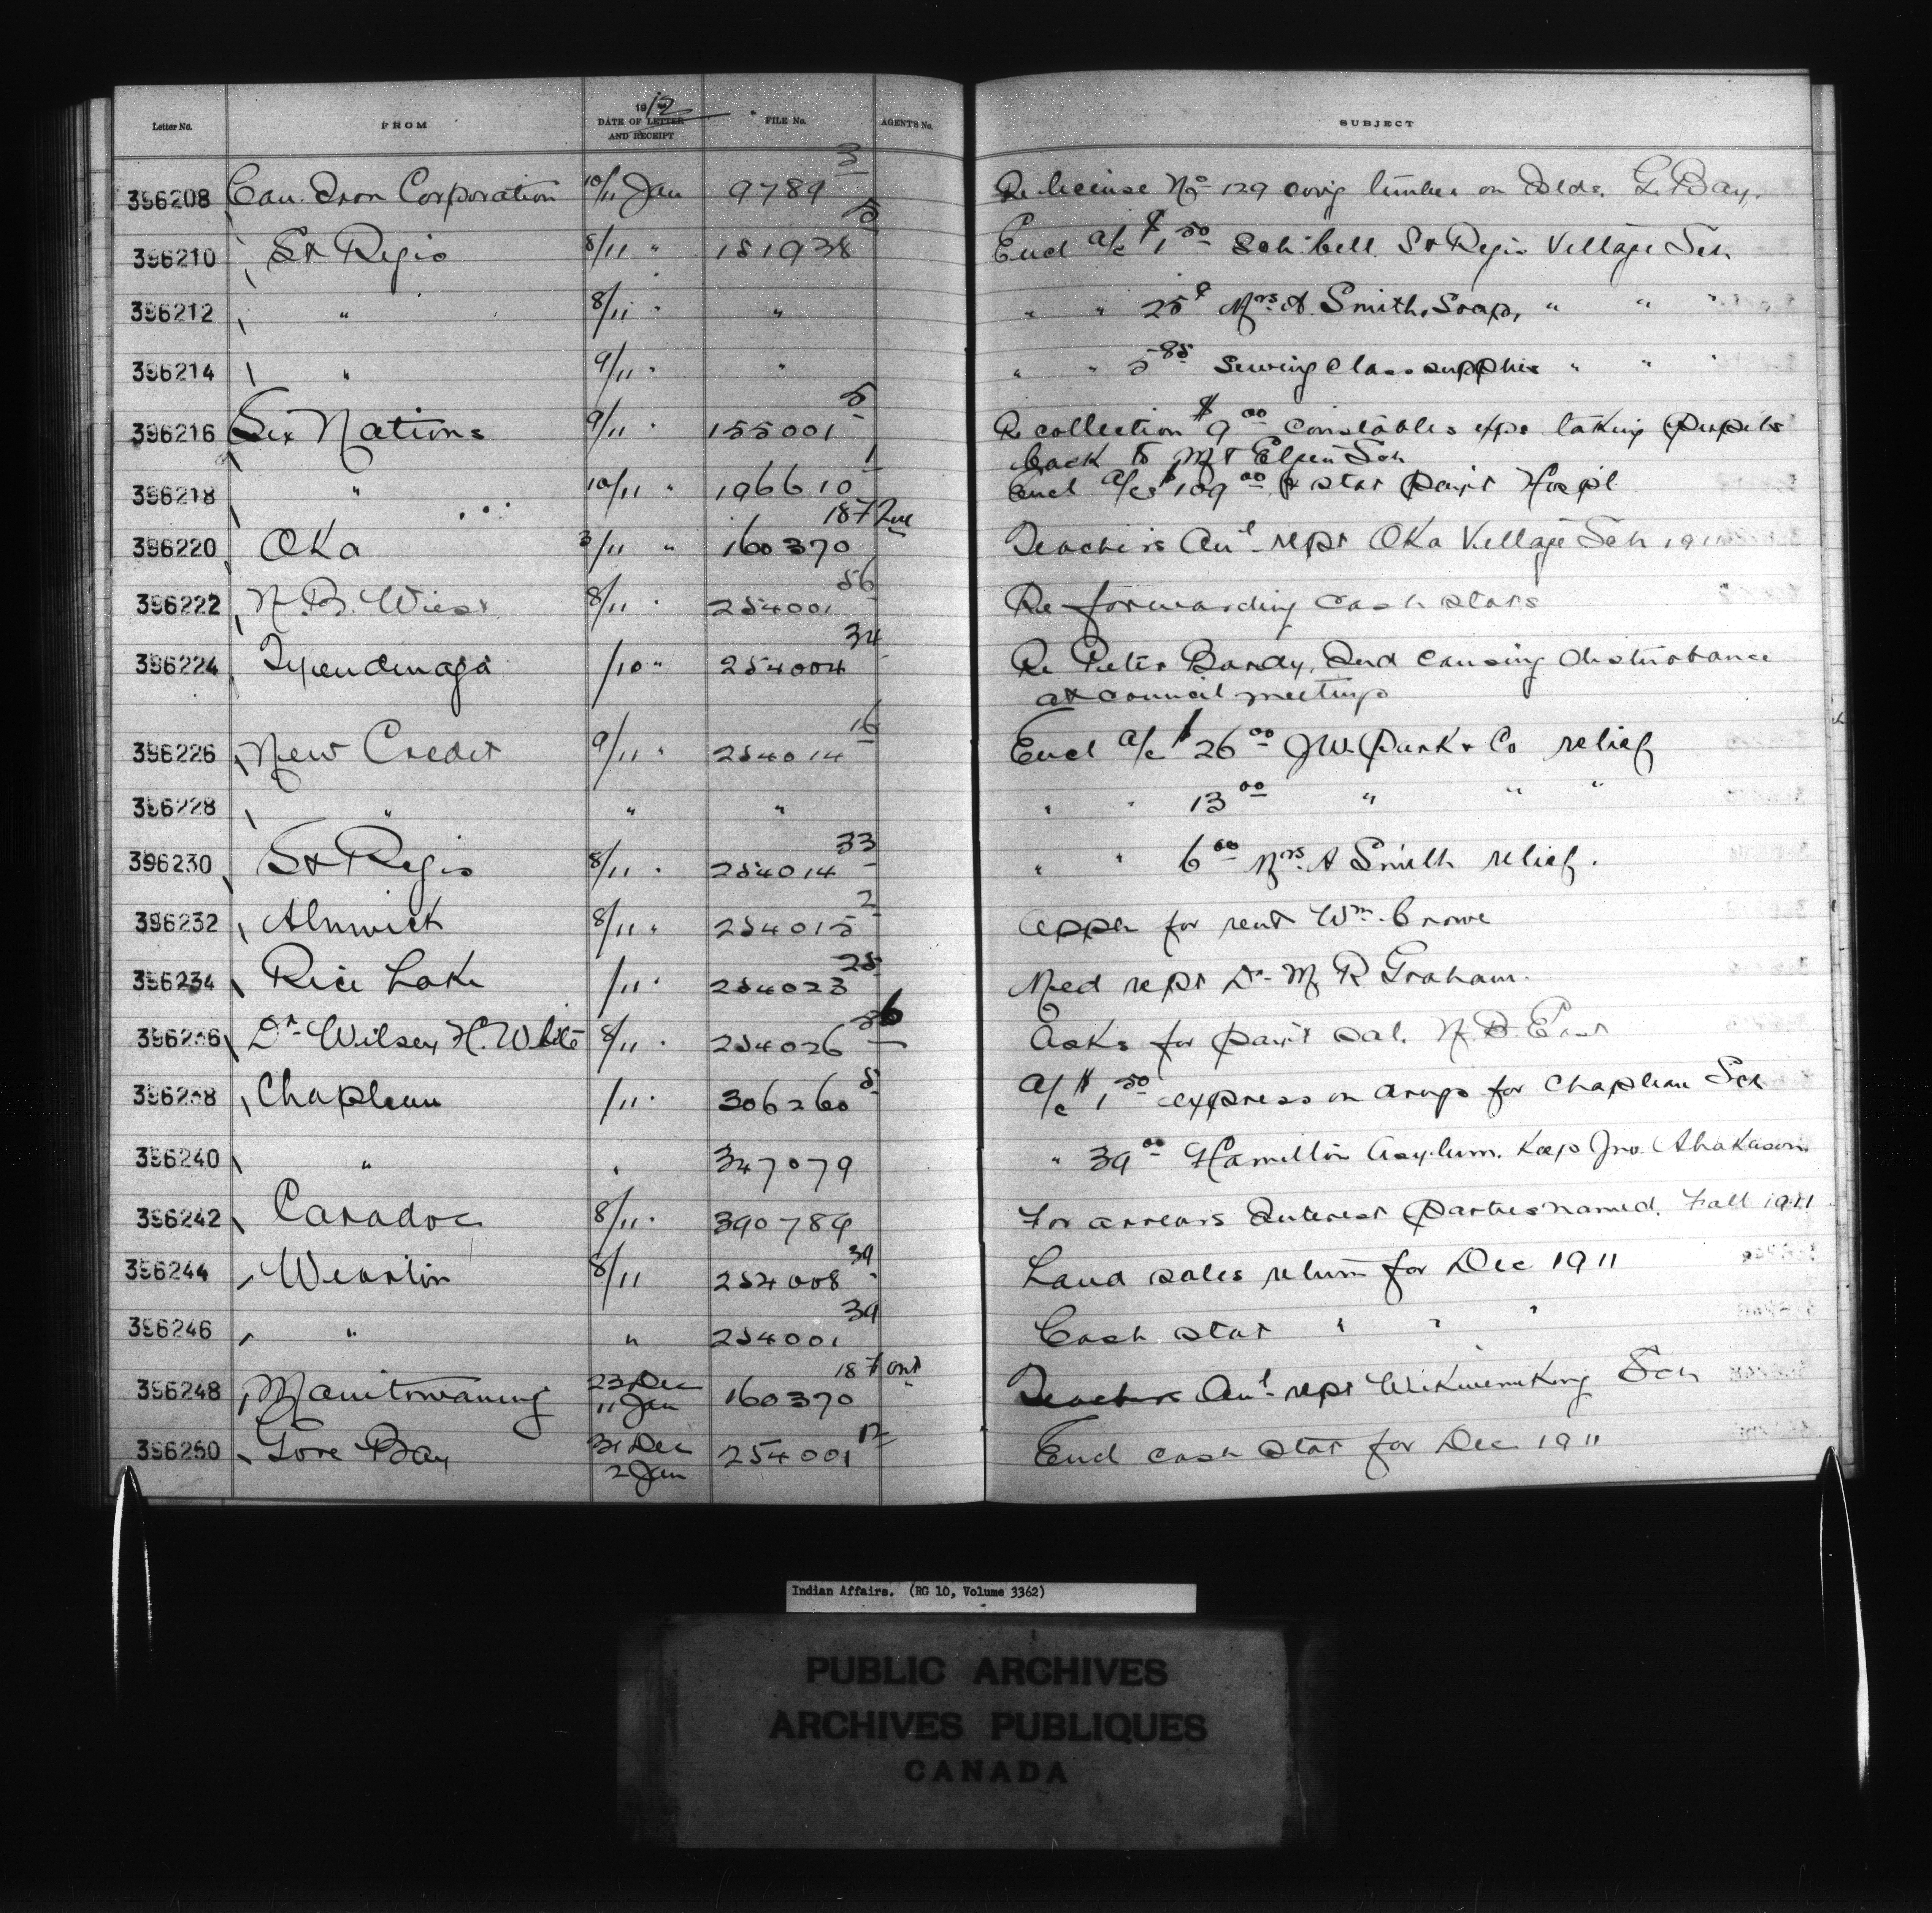 Letter No. FROM 1912 DATE OF LETTER AND RECEIPT FILE No. AGENT'S No. SUBJECT
396208 Can. Iron Corporation 10/11 Jan 9789 3 Re license No 129 covg timber on Islds. G. Bay.
396210 St Regis 8/11 " 151938 5 Encl a/c $1 50 Sch. bell St Regis Village Sch
396212 " 8/11 " " " " 25¢ Mrs A. Smith, Soap, " " "
396214 " 9/11 " " " " 5 85 Sewing Class supplies " " "
396216 Six Nations 9/11 " 155001 5 Re collection $9 00 Constables exps taking pupils
back to Mt Elgin Sch
396218 " 10/11 " 106610 1 Encl a/cs $109 00 & stat pay't Hospl
396220 Oka 3/11 " 160370 187 Que Teachers Anl rept Oka Village Sch 1911
396222 N.B. West 8/11 " 254001 56 Re forwarding cash stats
396224 Tyendinaga /10 " 254004 34 Re Peter Bardy, Ind causing disturbance
at council meetings
396226 New Credit 9/11 " 254014 16 Encl a/c $26 00 J W. Park & Co relief
396228 " " " " " 13 00 " " "
396230 St Regis 8/11 " 254014 33 " " 6 00 Mrs. A Smith relief.
396232 Alnwick 8/11 " 254015 2 Appn for rent Wm. Crowe
396234 Rice Lake /11 " 254023 25 Med rept Dr. M R Graham.
396236 Dr Wilsey H. White 8/11 " 254026 56 Asks for pay't sal. N. B. East
396238 Chapleau /11 " 306260 5 a/c $1 50 express on drugs for Chapleau Sch
396240 " " 347079 " 39 00 Hamilton Asylum. Keep Jno.
396242 Caradoc 8/11 " 390789 For arrears Interest parties named. Fall 1911
396244 Wiarton 8/11 254008 39 Land sales return for Dec 1911
396246 " " 254001 39 Cash stat " " "
396248 Manitowaning 23 Dec 11 Jan 160370 187 Ont Teachers Anl rept Wikwemikong Sch
396250 Gore Bay 31 Dec 2 Jan 254001 12 Encl cash stat for Dec 1911
Indian Affairs. (RG 10, Volume 3362)
PUBLIC ARCHIVES
ARCHIVES PUBLIQUES
CANADA